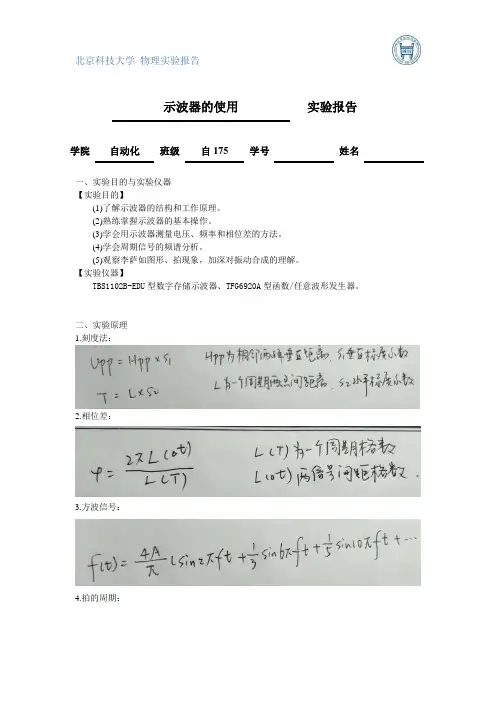 北京科技大学 物理实验报告
示波器的使用 实验报告
学院 自动化 班级 自175 学号 姓名
一、实验目的与实验仪器
【实验目的】
(1)了解示波器的结构和工作原理。
(2)熟练掌握示波器的基本操作。
(3)学会用示波器测量电压、频率和相位差的方法。
(4)学会周期信号的频谱分析。
(5)观察李萨如图形、拍现象，加深对振动合成的理解。
【实验仪器】
TBS1102B-EDU型数字存储示波器、TFG6920A型函数/任意波形发生器。
二、实验原理
1.刻度法：
Upp = Hpp × S1 Hpp为相邻两峰垂直距离，S1垂直标度示数
T = L×S2 L为一个周期两点间距离，S2水平标度示数
2.相位差：
φ = 2πL(ot) / L(T) L(T)为一个周期格数
L(ot)两信号间距格数.
3.方波信号：
f(t) = 4A/π (sin2πft + 1/3 sin6πft + 1/5 sin10πft + ⋯
4.拍的周期：